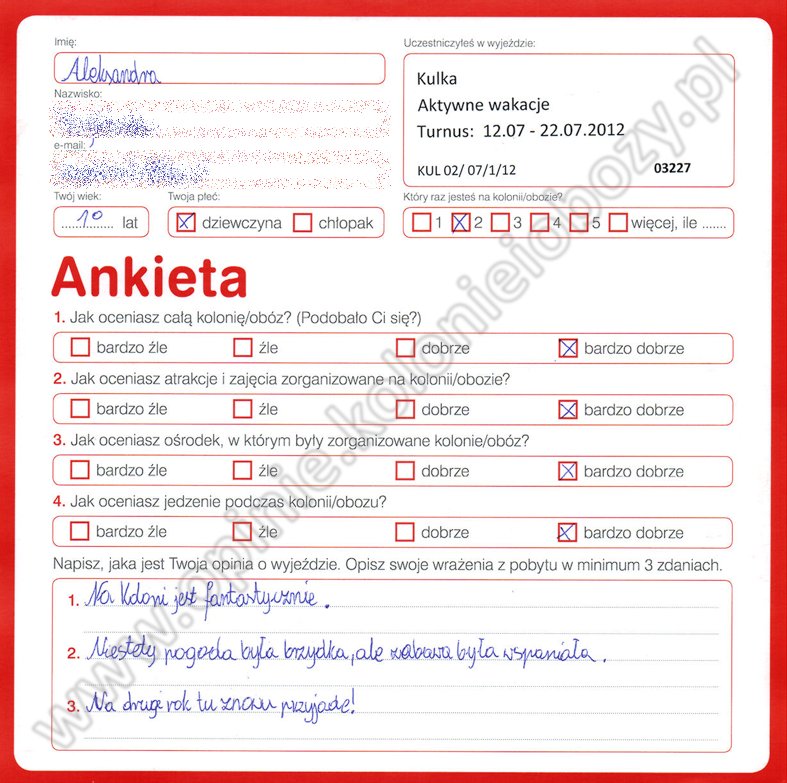 Imię:
Aleksandra
Uczestniczyłeś w wyjeździe:
Kulka
Aktywne wakacje
Turnus: 12.07 - 22.07.2012
KUL 02/ 07/1/12 03227
Nazwisko:
e-mail:
Twój wiek:
10 lat
Twoja płeć:
dziewczyna chłopak
Który raz jesteś na kolonii/obozie?
1 2 3 4 5 więcej, ile .......
Ankieta
1. Jak oceniasz całą kolonię/obóz? (Podobało Ci się?)
bardzo źle źle dobrze bardzo dobrze
2. Jak oceniasz atrakcje i zajęcia zorganizowane na kolonii/obozie?
bardzo źle źle dobrze bardzo dobrze
3. Jak oceniasz ośrodek, w którym były zorganizowane kolonie/obóz?
bardzo źle źle dobrze bardzo dobrze
4. Jak oceniasz jedzenie podczas kolonii/obozu?
bardzo źle źle dobrze bardzo dobrze
Napisz, jaka jest Twoja opinia o wyjeździe. Opisz swoje wrażenia z pobytu w minimum 3 zdaniach.
1. Na Koloni jest fantastycznie.
2. Niestety pogoda była brzydka, ale zabawa była wspaniała.
3. Na drugi rok tu znowu przyjadę!
www.opinie.kolonieiobozy.pl